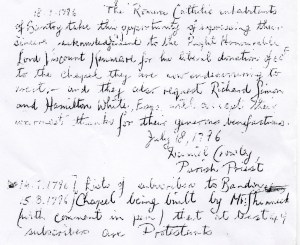 18.7.1796 "The Roman Catholic inhabitants
of Bantry take this opportunity of expressing their
sincere acknowledgement to the Right Honourable
Lord Viscount Kenmare for his liberal donation of
to the chapel they are now endeavouring to
erect, - and they also request Richard Simon
and Hamilton White, Esqs. will accept their
warmest thanks for their generous benefactions.
July 18, 1796
Daniel Crowly,
Parish Priest
14.7.1796 Lists of subscribers to Bandon
5.8.1796 Chapel being built by Mr.
(with comment in pen) that at least
subscribers are Protestants